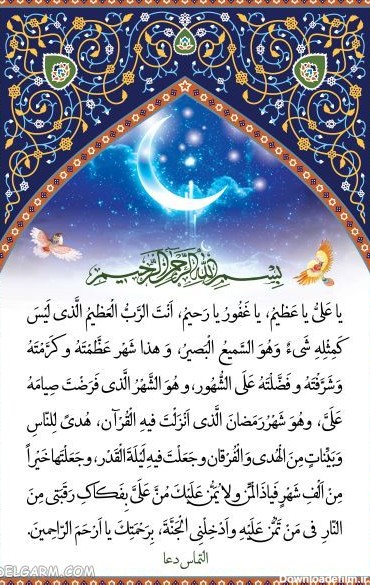 بسم الله الرحمن الرحیم
یا عَلیُّ یا عَظیمُ، یا غَفُورُ یا رَحیمُ، اَنْتَ الرَّبُّ الْعَظیمُ الَّذی لَیْسَ
کَمِثْلِهِ شَیءٌ وَهُوَ السَّمیعُ الْبَصیرُ، وَ هذا شَهْرٌ عَظَّمْتَهُ وَ کَرَّمْتَهُ
وَ شَرَّفْتَهُ وَ فَضَّلْتَهُ عَلَی الشُّهُورِ، وَ هُوَ الشَّهْرُ الَّذی فَرَضْتَ صِیامَهُ
عَلَیَّ، وَهُوَ شَهْرُ رَمَضانَ الَّذی اَنْزَلْتَ فیهِ الْقُرْآنَ، هُدیً لِلنّاسِ
وَ بَیِّناتٍ مِنَ الْهُدی وَ الْفُرْقانِ وَ جَعَلْتَ فیهِ لَیْلَةَ الْقَدْرِ، وَ جَعَلْتَها خَیْراً
مِنْ اَلْفِ شَهْرٍ فَیاذَا الْمَنِّ وَ لا یُمَنُّ عَلَیْكَ مُنَّ عَلَیَّ بِفَکاكِ رَقَبَتی مِنَ
النّارِ فی مَنْ تَمُنُّ عَلَیْهِ وَ اَدْخِلْنِی الْجَنَّةَ، بِرَحْمَتِكَ یا اَرْحَمَ الرّاحِمینَ.
التماس دعا
DELGARM.COM
Downloadefilm.ir